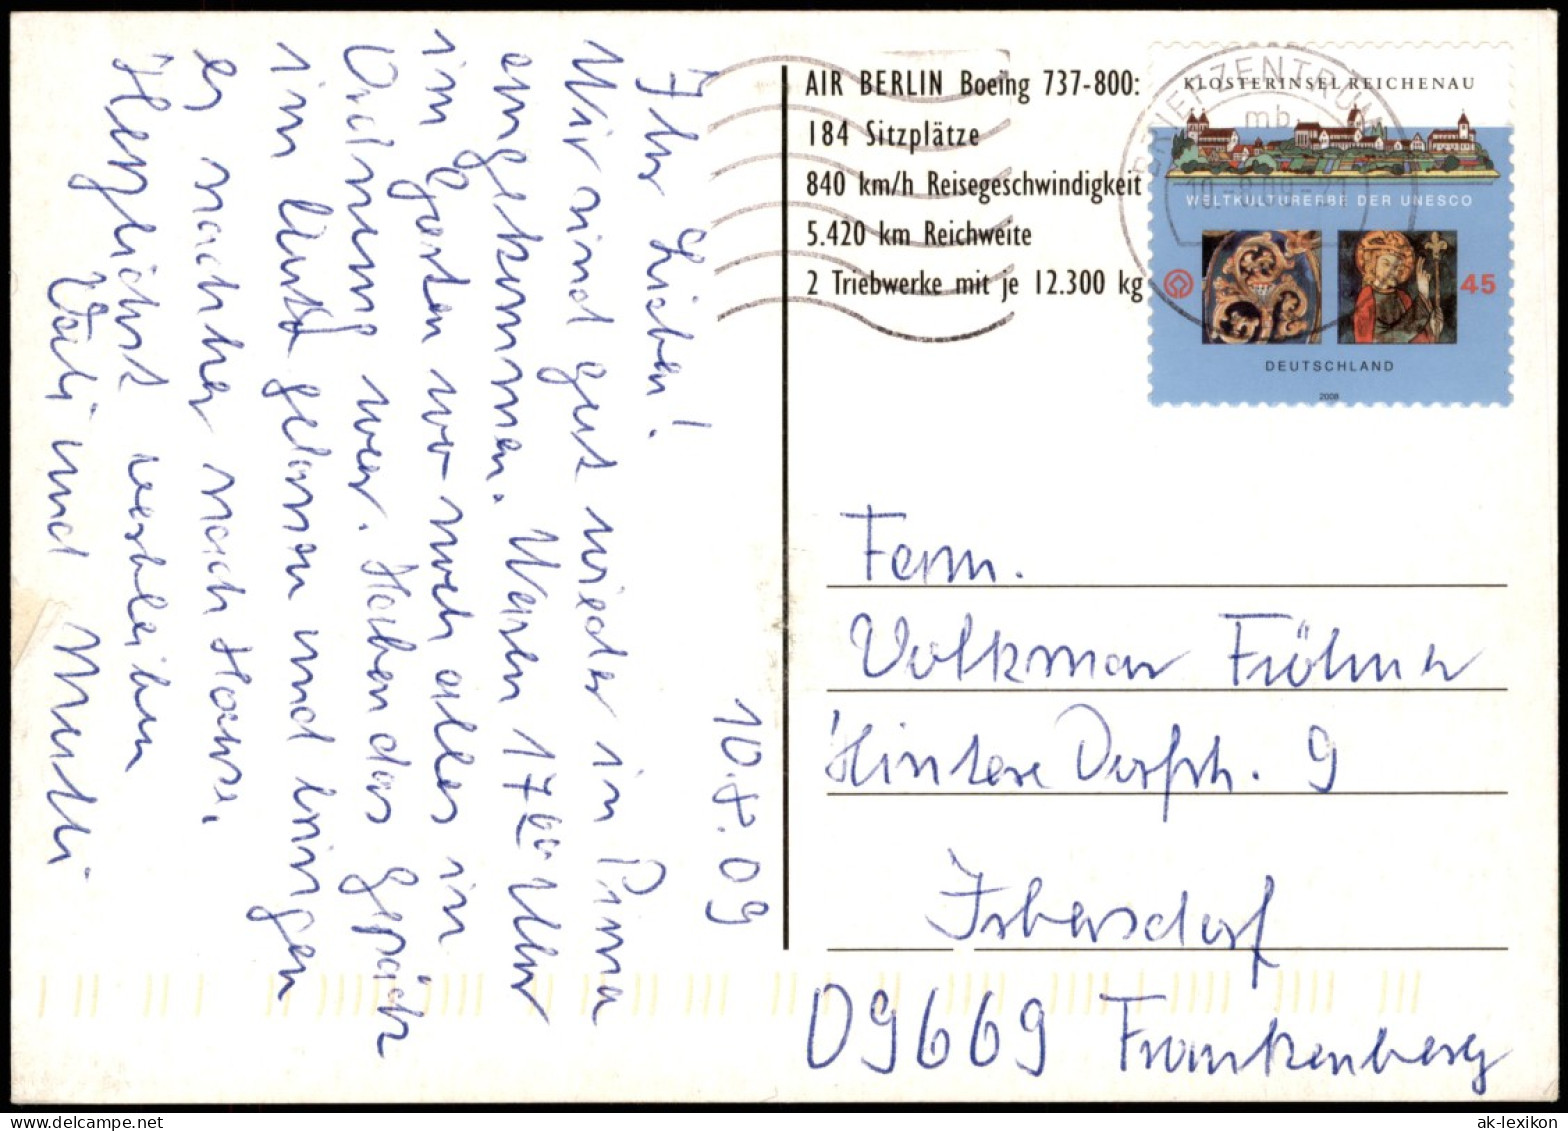 10.8.09
Ihr Lieben!
Wir sind gut wieder in Pirna
angekommen. Waren 17 00 Uhr
im Garten wo noch alles in
Ordnung war. Haben das Gepäck
im Auto gelassen und bringen
es nachher nach Hause.
Herzlichst verbleiben
Vati und Mutti
AIR BERLIN Boeing 737-800:
184 Sitzplätze
840 km/h Reisegeschwindigkeit
5.420 km Reichweite
2 Triebwerke mit je 12.300 kg
KLOSTERINSEL REICHENAU
WELTKULTURERBE DER UNESCO
45
DEUTSCHLAND
2008
BRIEFZENTRUM
mb
10.-8.09-21
Fam.
Volkmar Fröhner
Hintere Dorfstr. 9
Irbersdorf
09669 Frankenberg
ak-lexikon